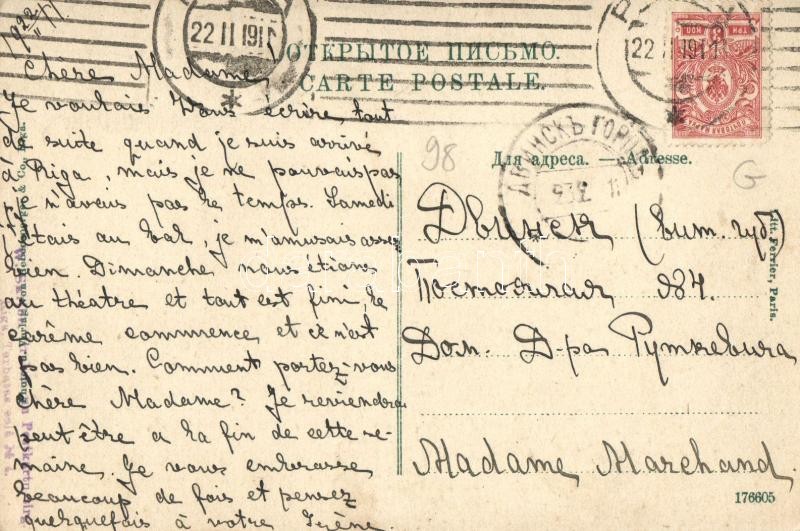 1922/II 11
22 II 1911
22 II 1911
ТРИ
3
КОП
ОТКРЫТОЕ ПИСЬМО.
CARTE POSTALE.
Chère Madame,
Je voulais Vous écrire tout
de suite quand je suis arrivé
à Riga, mais je ne pouvais pas
je n'avais pas le temps. Samedi
j'étais au bal, je m'amusais assez
bien. Dimanche nous étions
au théatre et tout est fini, le
carême commence et ce n'est
pas bien. Comment portez-vous
Chère Madame? Je reviendrai
peut être a la fin de cette se-
maine. Je vous embrasse
beaucoup de fois et pensez
quelquefois à votre Irène.
98
G
ДВИНСКЪ ГОРОД
Для адреса. — Adresse.
Двинск (Вит. губ)
Постоялая д84.
Дом. Д-ра Руткевича
Madame Marchand.
Lit. Ferrier, Paris.
176605